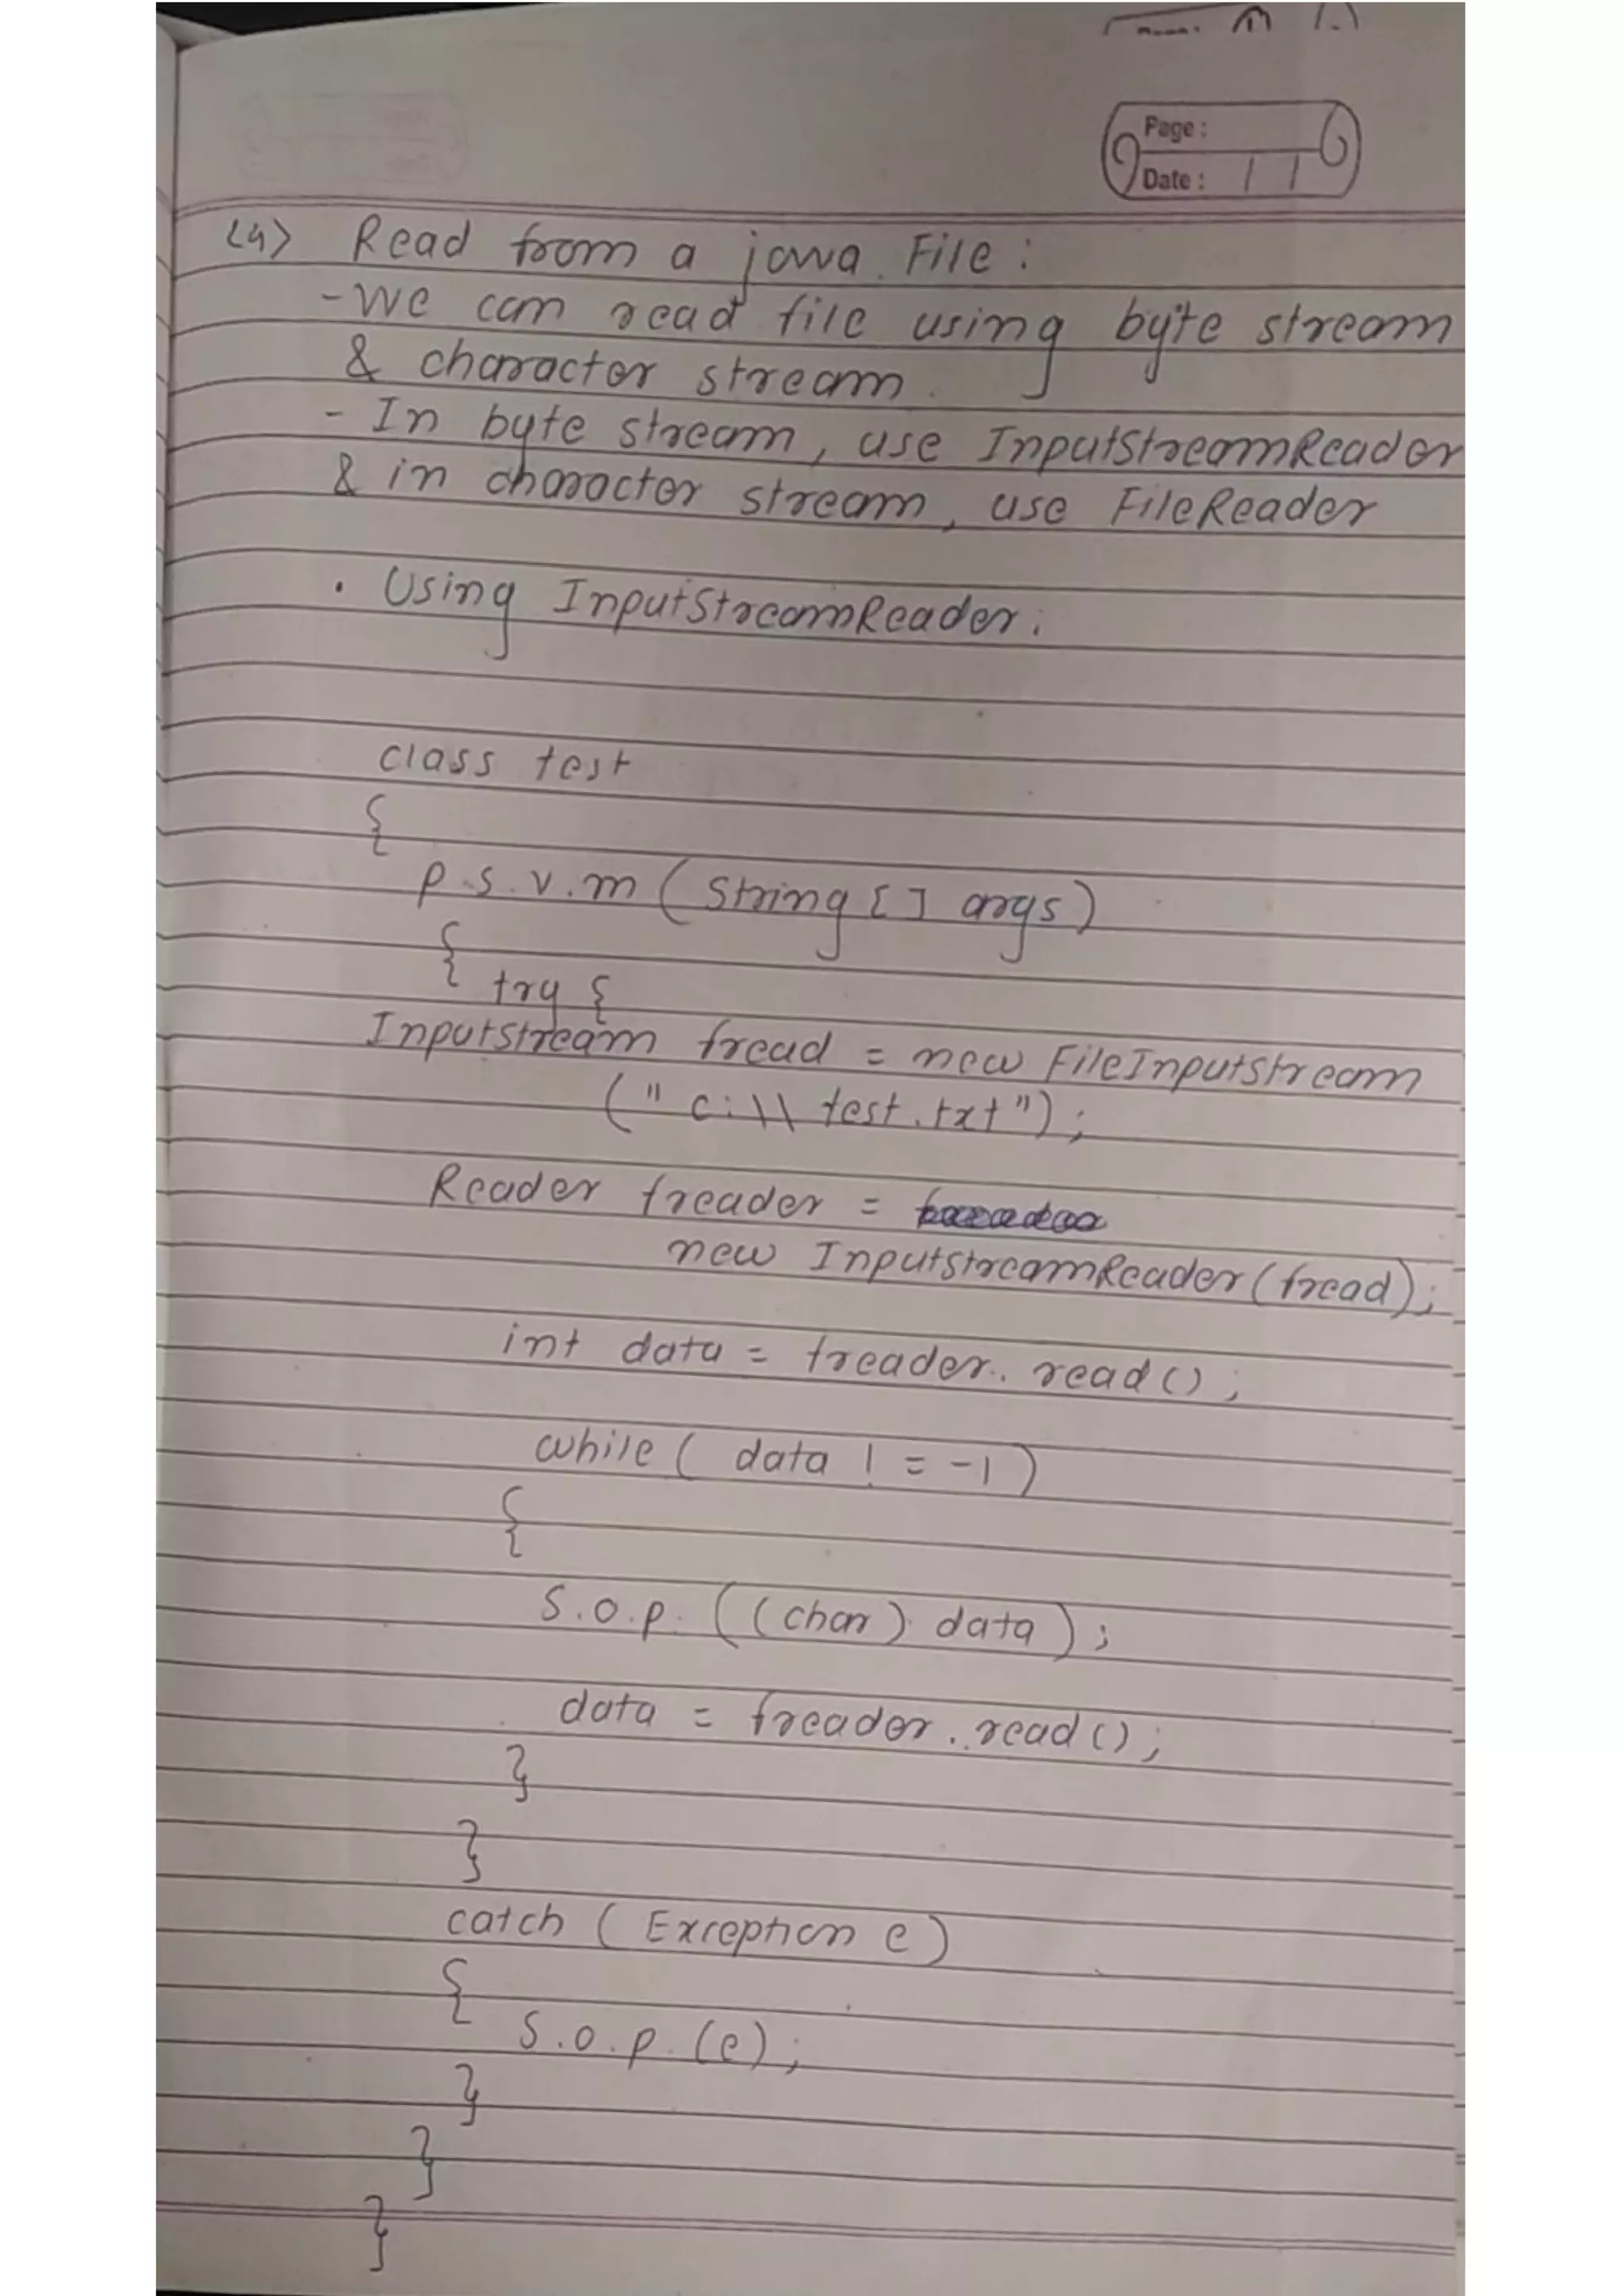 Page :
Date : / /
<4> Read from a java File :
- We can read file using byte stream
& charactor stream.
- In byte stream, use InputStreamReader
& in charactor stream, use FileReader
. Using InputStreamReader:
class test
{
p.s.v.m (String [] args)
{ try {
Inputstream fread = new FileInputStream
("c:\\ test.txt");
Reader freader =
new InputstreamReader (fread);
int data = freader. read ();
while ( data ! = -1 )
{
S.o.p. ( (char) data ) ;
data = freader. read () ;
}
}
catch ( Exception e )
{
S.o.p. (e) ;
}
}
}